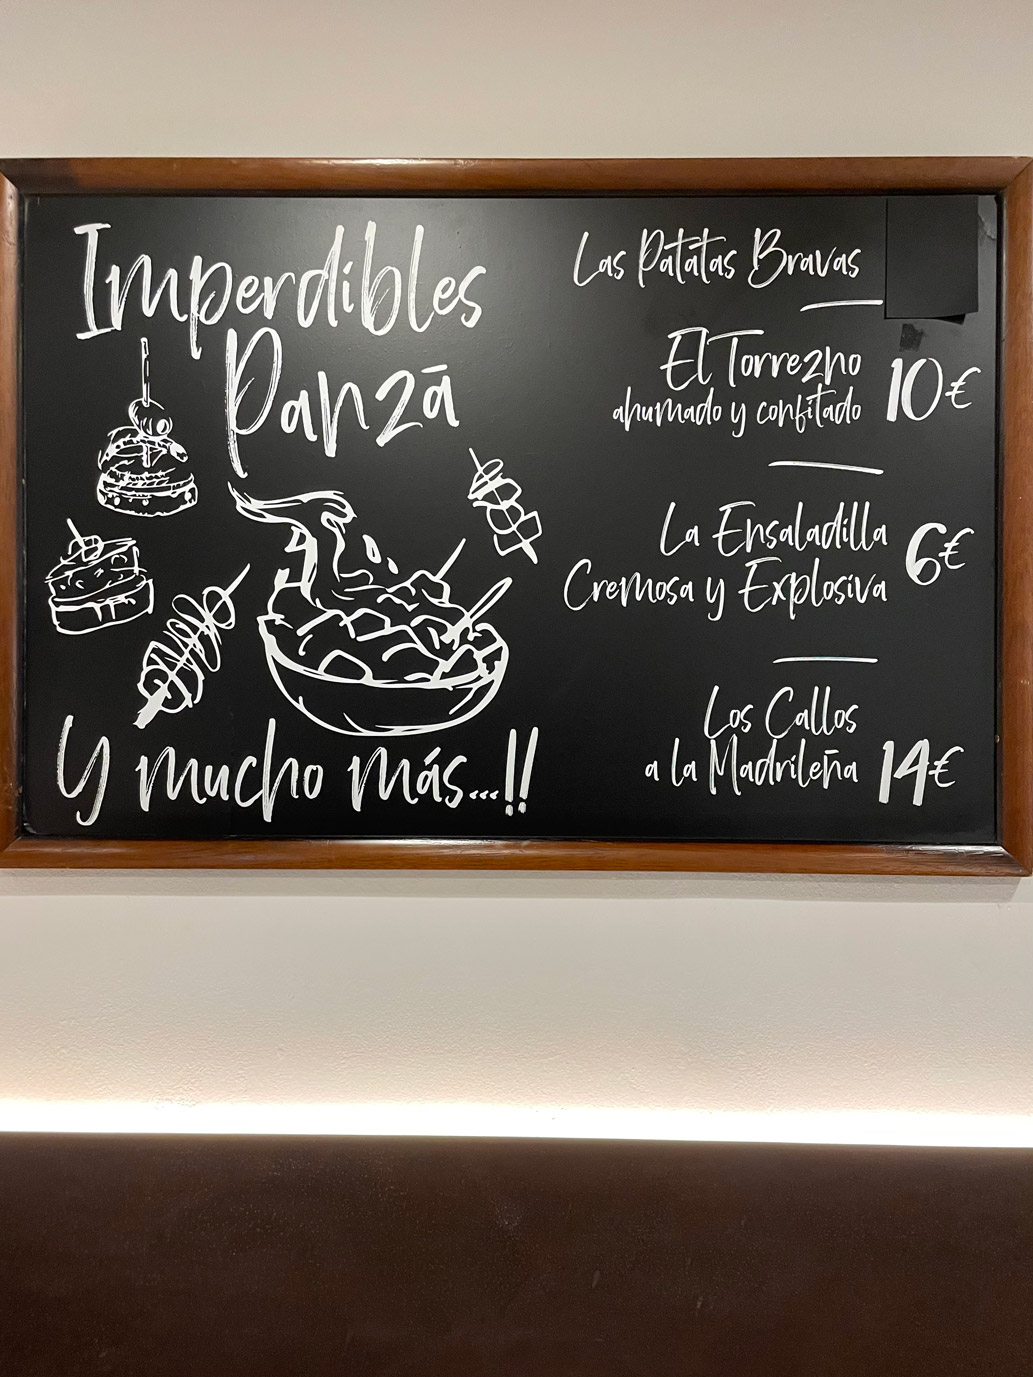 Imperdibles
Panzā
Y mucho más...!!
Las Patatas Bravas
El Torrezno
ahumado y confitado
10€
La Ensaladilla
Cremosa y Explosiva
6€
Los Callos
a la Madrileña
14€